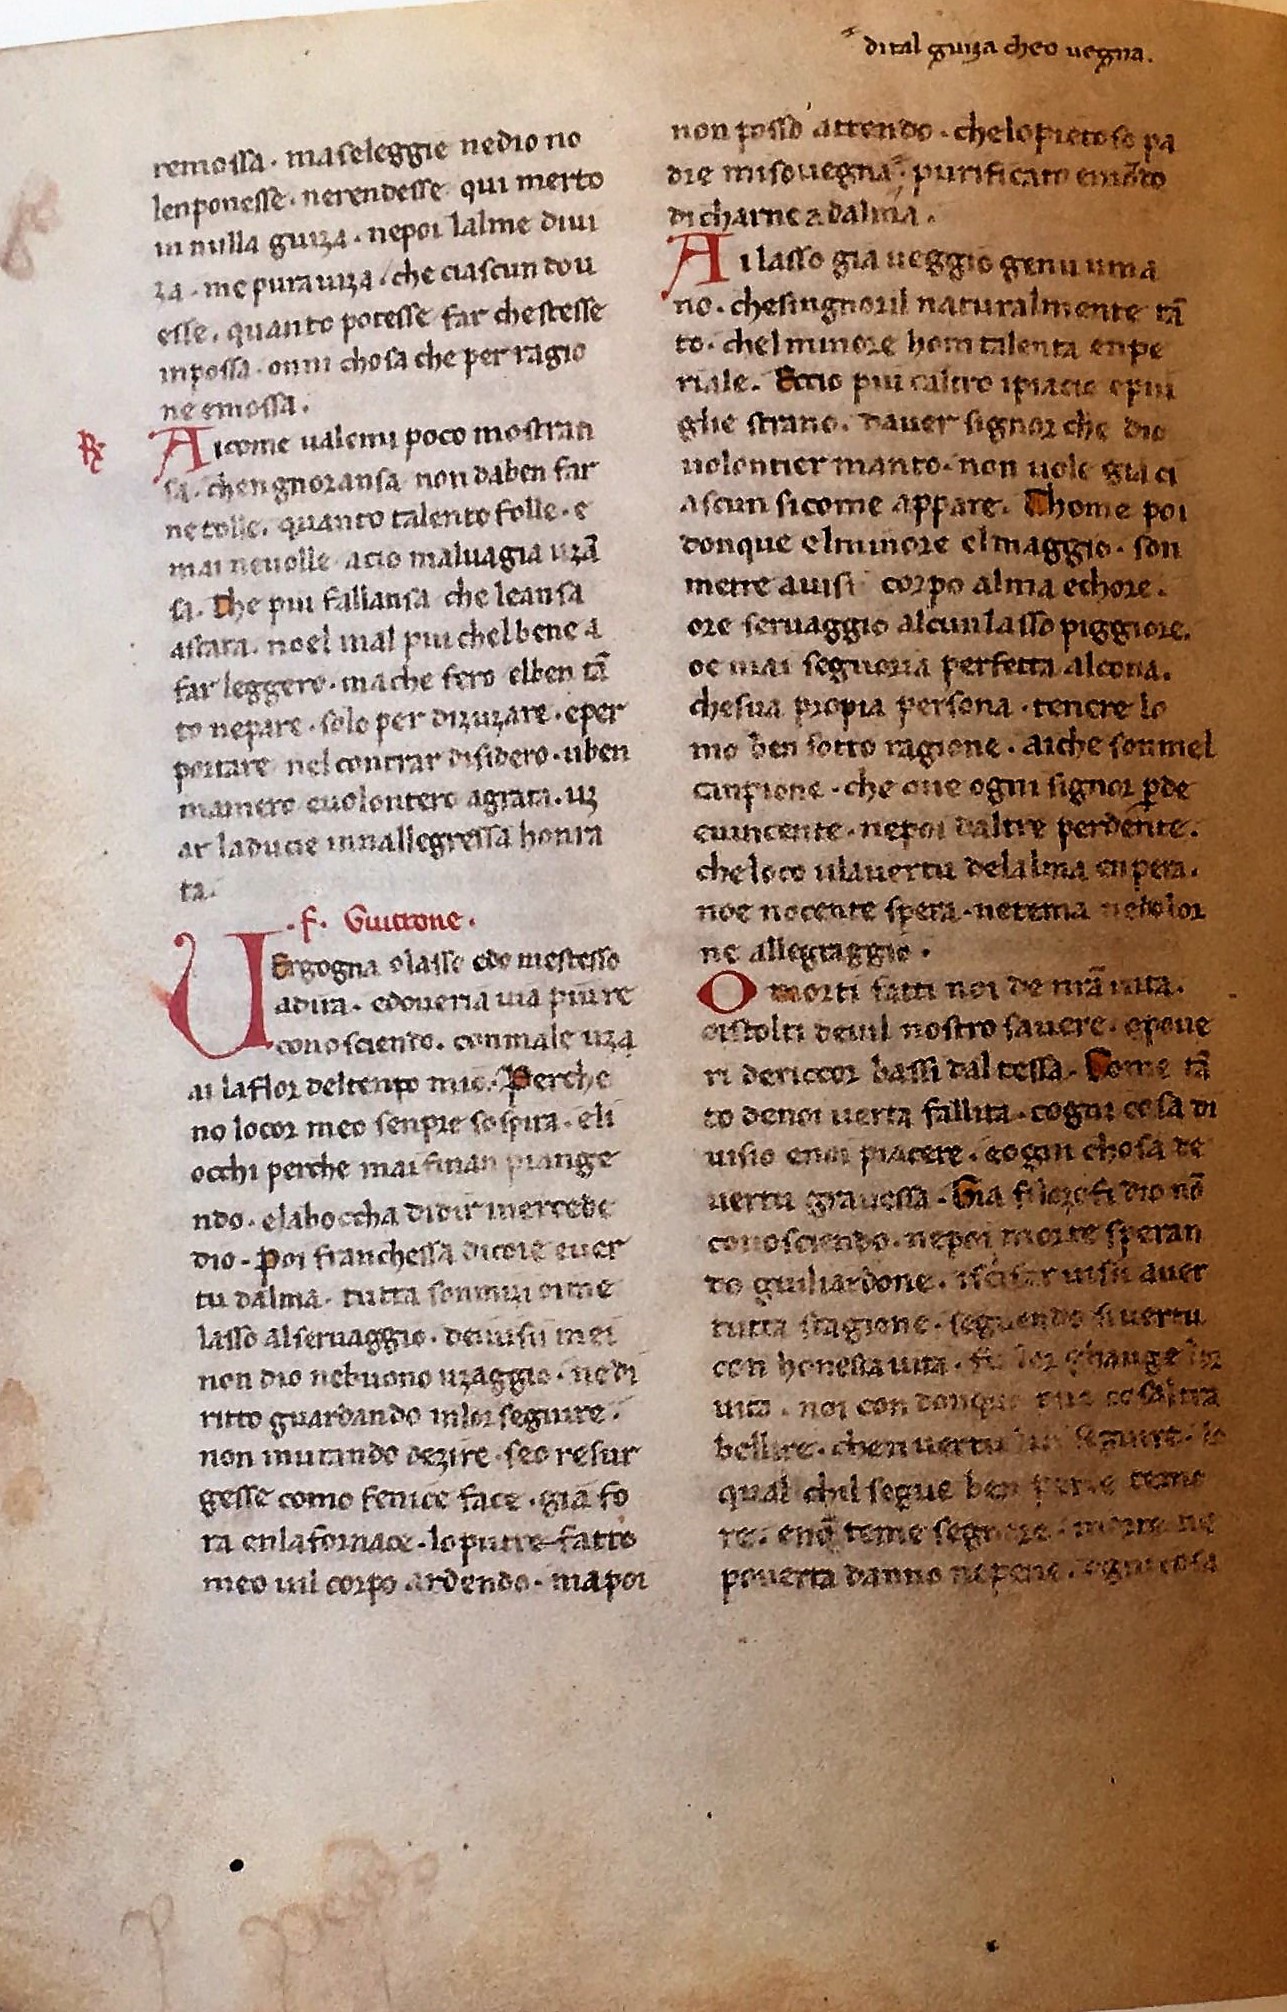 dital guiza cheo uegna.
remossa · maseleggie nedio no
lenponesse · nerendesse qui merto
in nulla guiza · nepoi lalme diui
za · me pura uiza · che ciascun dou
esse · quanto potesse far chestesse
inpossa · onni chosa che per ragio
ne emossa.
Aicome ualemi poco mostran
sa · chengnoransa non daben far
ne tolle · quanto talento folle · e
mai neuolle acio maluagia uzā
sa. Che piu fallansa che leansa
astata · noel mal piu chelbene a
far leggero · mache fero elben tā
to nepare · solo per dizuzare · eper
portare nel contrar disidero · uben
mainero euolontero agrata · uz
ar laducie innallegressa honra
ta.
· f · Guittone ·
Uergogna olasso edo mestesso
adira · edoueria uia piu re
conosciendo · conmale uza
ai laflor deltenpo mio. Perche
no locor meo senpre sospira · eli
occhi perche mai finan piange
ndo · elaboccha didir mercede
dio · Poi franchessa dicore euer
tu dalma · tutta sommizi oime
lasso alseruaggio · deuisii mei
non dio nebuono uzaggio · nedi
ritto guardando inlor seguire ·
non mutando dezire · seo resur
gesse como fenice face · gia fo
ra enlafornace · lo putre fatto
meo uil corpo ardendo · mapoi
non posso attendo · chelopietoso pa
dre misouegna · purificato emōdo
di charne 7 dalma ·
Ai lasso gia ueggio genu uma
no · chesingnoril naturalmente tā
to · chelminore hom talenta enpe
riale. Eccio piu caltro ipiacie epiu
glie strano · dauer signor che dio
uolontier manto · non uole gia ci
ascun sicome appare. Chome poi
donque elminore elmaggio · son
mette auisi corpo alma echore ·
ore seruaggio alcunlasso piggiore.
oe mai segnoria perfetta alcona.
chesua propia persona · tenere lo
mo ben sotto ragione · aiche sommel
canpione · che oue ogni signor pde
euincente · nepoi daltre perdente ·
cheloco ulauertu delalma enpera ·
noe nocente spera · netema nedolor
ne allegraggio ·
O morti fatti noi de nrā uita ·
oistolti deuil nostro sauere · opoue
ri dericcor bassi dal tessa · Come tā
to denoi uerta fallita · cogni cosa di
uisio enoi piacere · eogni chosa de
uertu grauessa · Gia filozofi dio nō
conosciendo · nepoi morte speran
do guiliardone · ischifar uisii auer
tutta stagione · seguendo si uertu
con honesta uita ·
uita · noi con donque
bellire · chen uertu seguire · lo
qual chil segue ben teme
re · enō teme segnore · morte ne
pouerta danno nepene · ogni cosa